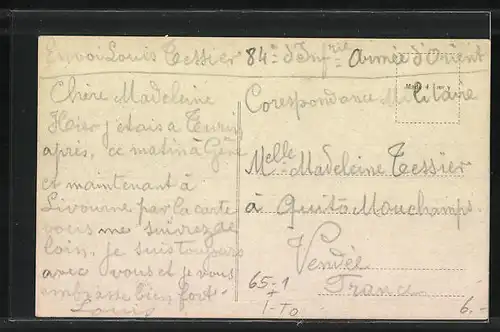 Envoi Louis Tessier 84e d'Infrie Armée d'Orient
Chère Madeleine
Hier j etais a Turin
après, ce matin à Gêne
et maintenant à
Livourne par la carte
vous me suivrez de
loin. je suis toujours
avec vous et je vous
embrasse bien fort
Louis
Corespondance Militaire
Melle Madeleine Tessier
à Mouchamps
Vendée
France
65-1
6.-